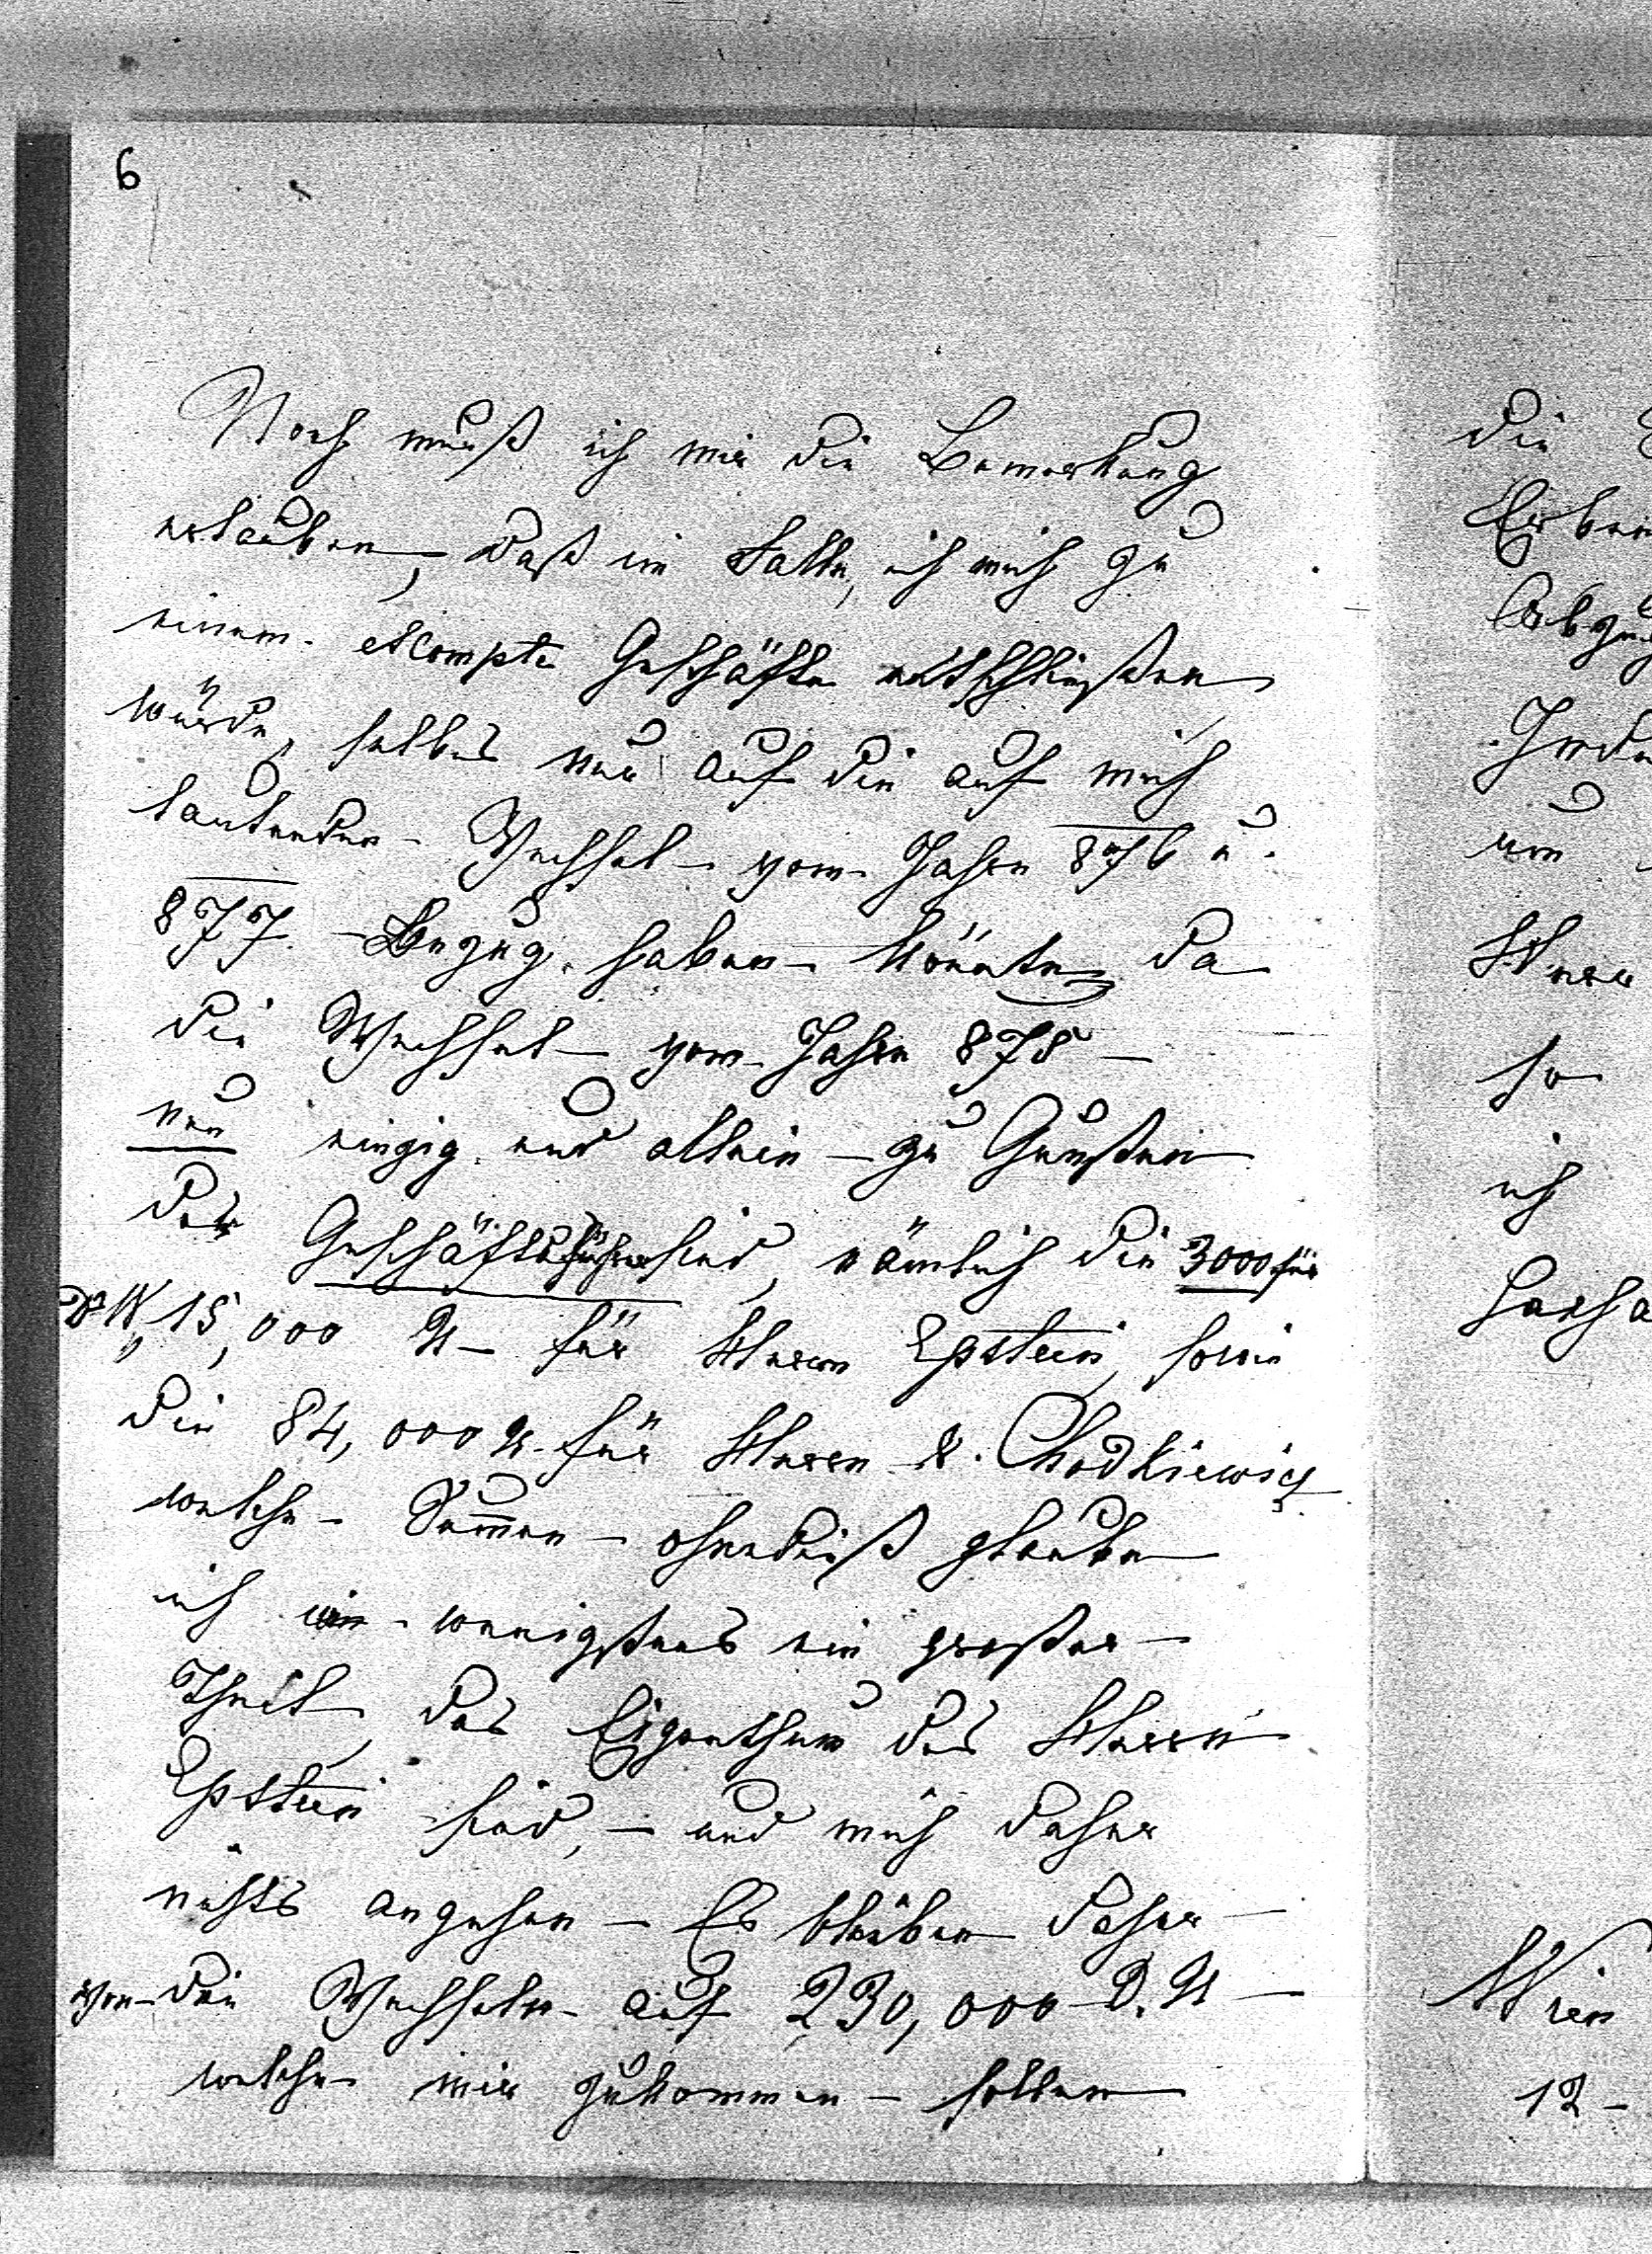 6
Noch muß ich mir die Bemerkung
erlauben, daß im Falle, ich mich zu
einem escompte Geschäfte entschließen
würde, selbes nur auf die auf mich
lautenden Wechsel vom Jahre 876 u.
877. Bezug haben könnte, da
die Wechsel vom Jahre 878
nun einzig und allein zu Gunsten
der Geschäftsführer sind, nämlich die 3000 für
15,000 für Herrn Epstein, sowie
die 84,000 für Herrn v. Chodkiewicz
welche Summen ohnedieß glaube
ich wenigstens ein großer
Theil, das Eigenthum des Herrn
Epstein sind, – und mich daher
nichts angehen – Es bleiben daher
von den Wechseln auf 230,000
welche mir zukommen sollen
die
um
Herr
so
ich
Wien
12 –